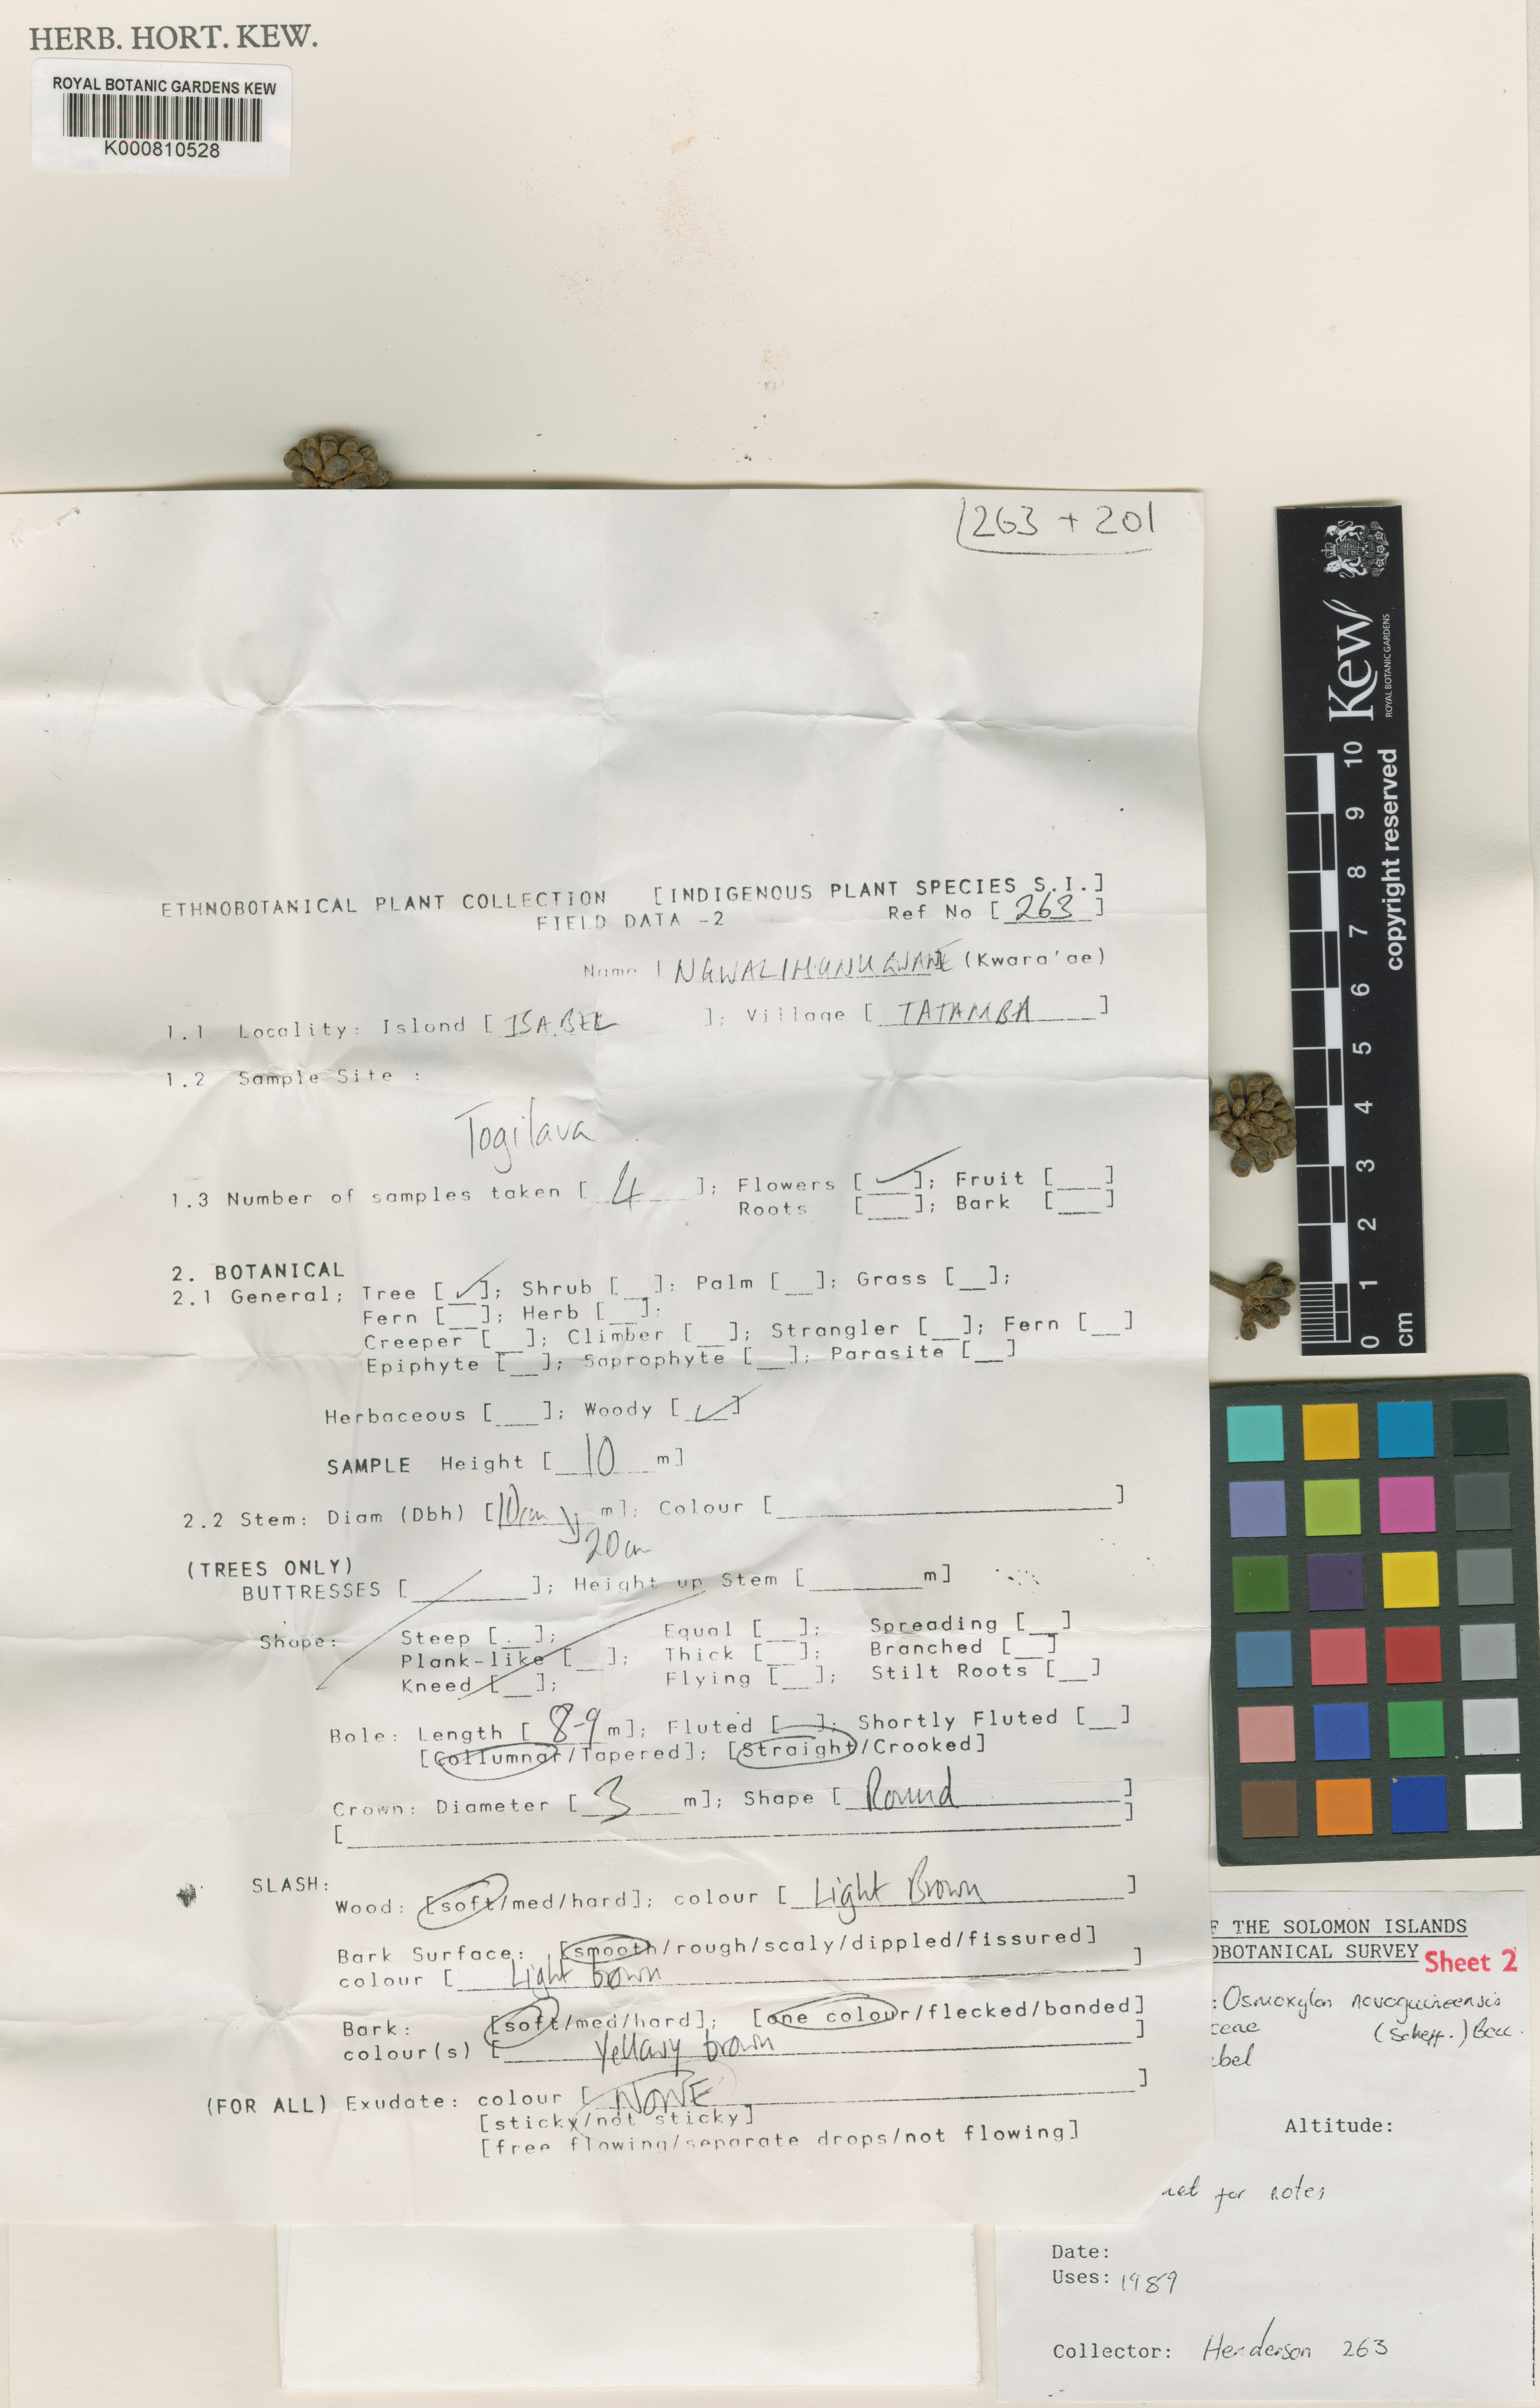 HERB. HORT. KEW.
ROYAL BOTANIC GARDENS KEW
K000810528
263 + 201
ETHNOBOTANICAL PLANT COLLECTION [INDIGENOUS PLANT SPECIES S.I.]
FIELD DATA -2 Ref No [ 263 ]
Name [ (Kwara'ae)
1.1 Locality: Island [ ISABEL ]; Village [ TATAMBA ]
1.2 Sample Site :
Togilava
1.3 Number of samples taken [ 4 ]; Flowers [ ✓ ]; Fruit [___]
Roots [___]; Bark [___]
2. BOTANICAL
2.1 General; Tree [ ✓ ]; Shrub [__]: Palm [__]; Grass [__];
Fern [__]; Herb [__]:
Creeper [__]; Climber [__]; Strangler [__]; Fern [__]
Epiphyte [__]; Saprophyte [__]; Parasite [__]
Herbaceous [___]; Woody [ ✓ ]
SAMPLE Height [ 10 m]
2.2 Stem: Diam (Dbh) [ 10cm m]; Colour [____]
20cm
(TREES ONLY)
BUTTRESSES [____]; Height up Stem [____m]
Shape: Steep [__]; Equal [__]; Spreading [__]
Plank-like [__]; Thick [__]; Branched [__]
Kneed [__]; Flying [__]; Stilt Roots [__]
Bole: Length [ 8-9 m]; Fluted [__]; Shortly Fluted [__]
[Collumnar/Tapered]; [Straight/Crooked]
Crown: Diameter [ 3 m]; Shape [ Round ]
[____]
SLASH:
Wood: [soft/med/hard]; colour [ Light Brown ]
Bark Surface: [smooth/rough/scaly/dippled/fissured]
colour [ Light brown ]
Bark: [soft/med/hard]; [one colour/flecked/banded]
colour(s) [ Yellowy brown ]
(FOR ALL) Exudate: colour [ NONE ]
[sticky/not sticky]
[free flowing/separate drops/not flowing]
Kew
ROYAL BOTANIC GARDENS
copyright reserved
0 1 2 3 4 5 6 7 8 9 10
cm
F THE SOLOMON ISLANDS
OBOTANICAL SURVEY Sheet 2
: Osmoxylon novoguineensis
ceae (Scheff.) Becc.
bel
Altitude:
for notes
Date:
Uses: 1989
Collector: Henderson 263